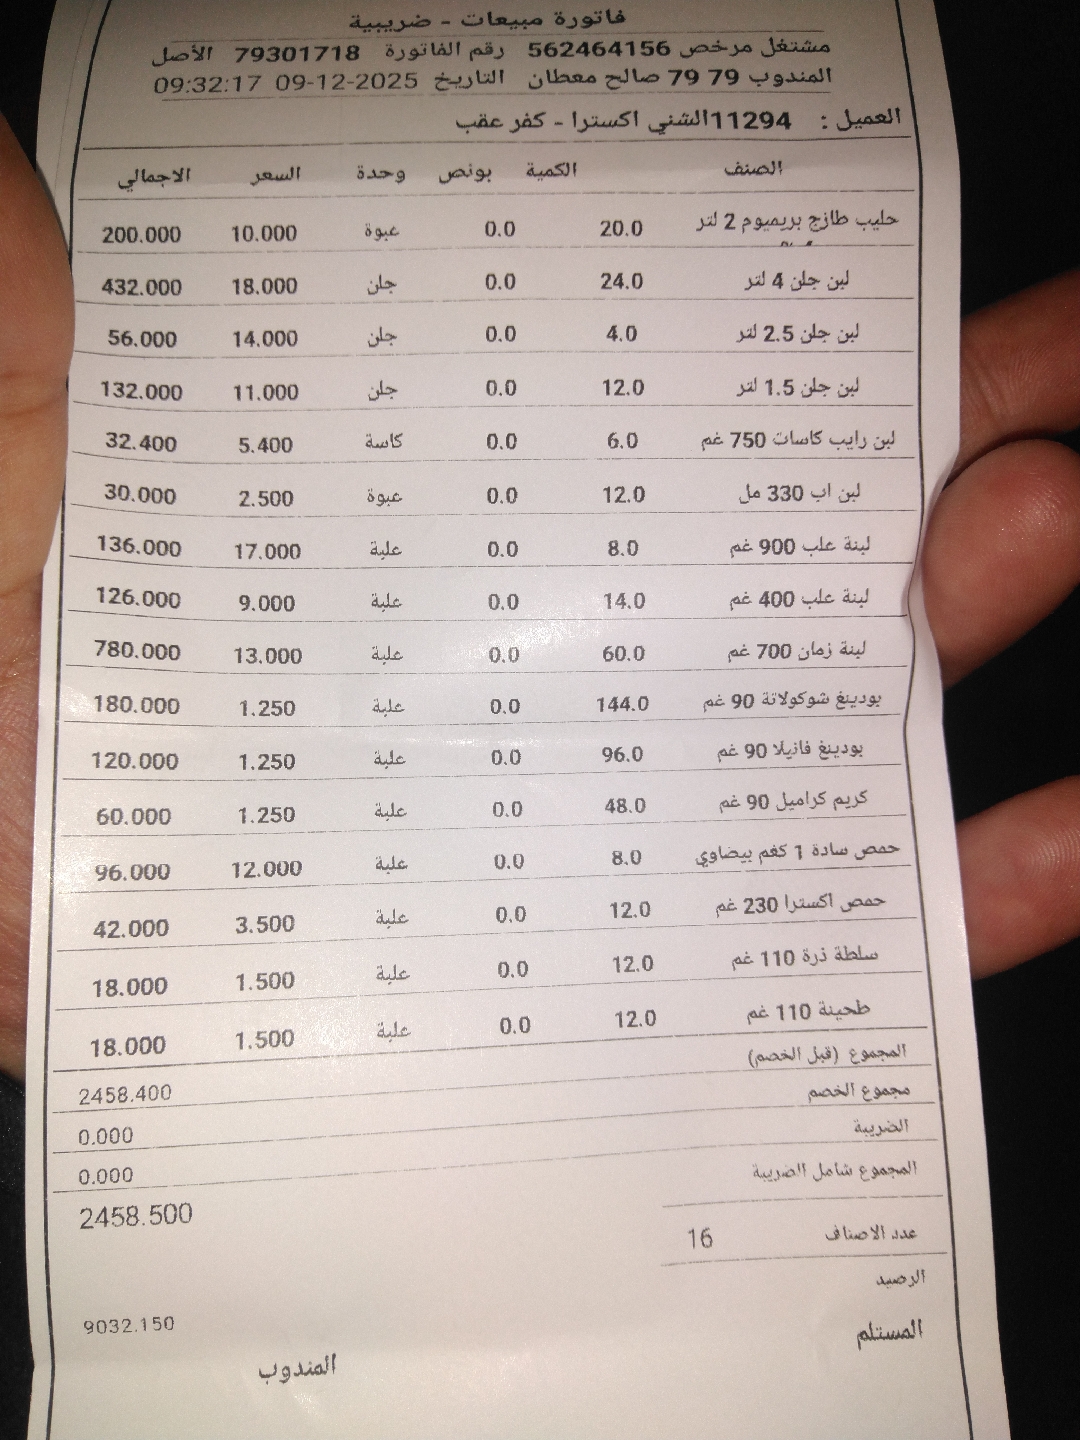 فاتورة مبيعات - ضريبية
مشتغل مرخص 562464156 رقم الفاتورة 79301718 الأصل
المندوب 79 79 صالح معطان التاريخ 2025-12-09 09:32:17
العميل : 11294الشني اكسترا - كفر عقب
الصنف الكمية بونص وحدة السعر الاجمالي
حليب طازج بريميوم 2 لتر 20.0 0.0 عبوة 10.000 200.000
لبن جلن 4 لتر 24.0 0.0 جلن 18.000 432.000
لبن جلن 2.5 لتر 4.0 0.0 جلن 14.000 56.000
لبن جلن 1.5 لتر 12.0 0.0 جلن 11.000 132.000
لبن رايب كاسات 750 غم 6.0 0.0 كاسة 5.400 32.400
لبن اب 330 مل 12.0 0.0 عبوة 2.500 30.000
لبنة علب 900 غم 8.0 0.0 علبة 17.000 136.000
لبنة علب 400 غم 14.0 0.0 علبة 9.000 126.000
لبنة زمان 700 غم 60.0 0.0 علبة 13.000 780.000
بودينغ شوكولاتة 90 غم 144.0 0.0 علبة 1.250 180.000
بودينغ فانيلا 90 غم 96.0 0.0 علبة 1.250 120.000
كريم كراميل 90 غم 48.0 0.0 علبة 1.250 60.000
حمص سادة 1 كغم بيضاوي 8.0 0.0 علبة 12.000 96.000
حمص اكسترا 230 غم 12.0 0.0 علبة 3.500 42.000
سلطة ذرة 110 غم 12.0 0.0 علبة 1.500 18.000
طحينة 110 غم 12.0 0.0 علبة 1.500 18.000
المجموع (قبل الخصم) 2458.400
مجموع الخصم 0.000
الضريبة 0.000
المجموع شامل الضريبة 2458.500
عدد الاصناف 16
الرصيد 9032.150
المستلم المندوب